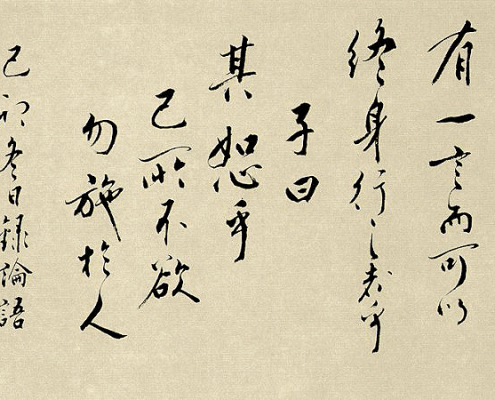 有一言而可以
終身行之者乎
子曰
其恕乎
己所不欲
勿施於人
己卯冬日錄論語